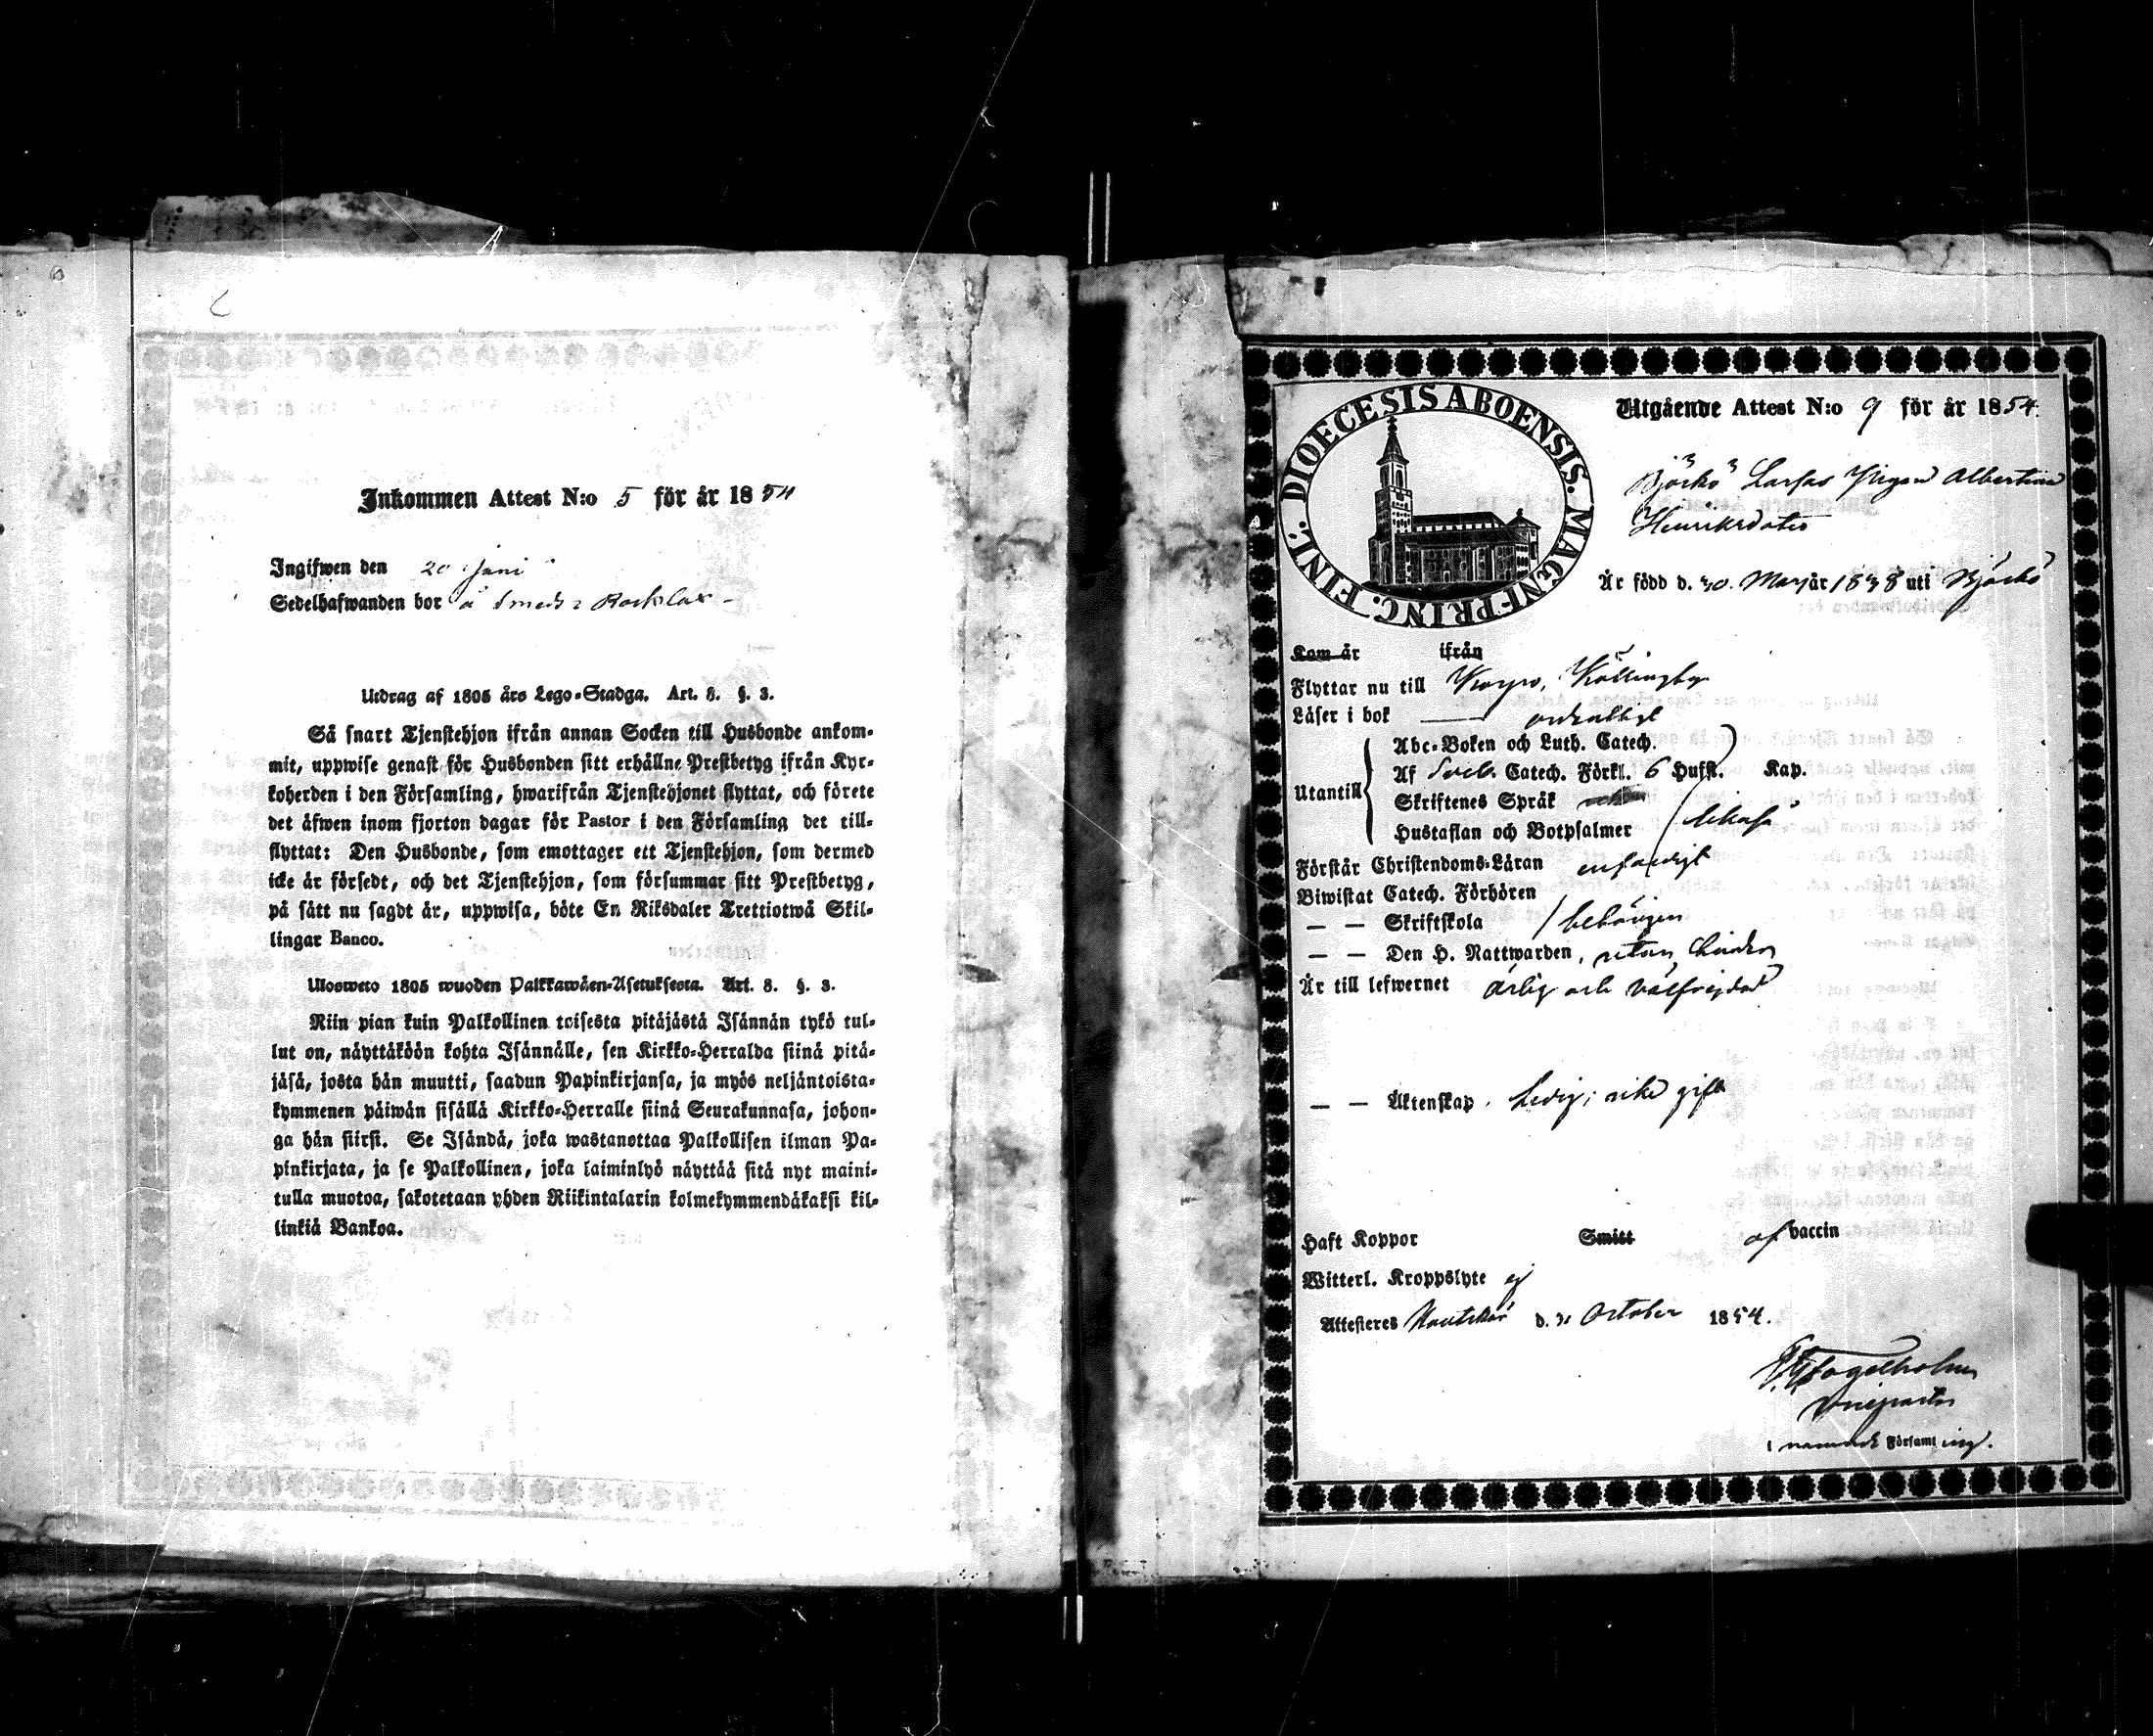 Inkommen Attest N:o 5 för år 1854
Ingifwen den 20 Juni
Sedelhafwanden bor å Smeds Rockelax
Utdrag af 1805 års Lego-Stadga. Art. 8. §. 3.
Så snart Tjenstehjon ifrån annan Socken till Husbonde ankom-
mit, uppwise genast för Husbonden sitt erhållne Prestbetyg ifrån Kyr-
koherden i den Församling, hwarifrån Tjenstehjonet flyttat, och förete
det äfwen inom fjorton dagar för Pastor i den Församling det till-
flyttat: Den Husbonde, som emottager ett Tjenstehjon, som dermed
icke är försedt, och det Tjenstehjon, som försummar sitt Prestbetyg,
på sätt nu sagdt är, uppwisa, böte En Riksdaler Trettiotwå Skil-
lingar Banco.
Ulosweto 1805 wuoden Palkkawäen-Asetuksesta. Art. 8. §. 3.
Niin pian kuin Palkollinen toisesta pitäjästä Isännän tykö tul-
lut on, näyttäköön kohta Isännälle, sen Kirkko-Herralda siinä pitä-
jäsä, josta hän muutti, saadun Papinkirjansa, ja myös neljäntoista-
kymmenen päiwän sisällä Kirkko-Herralle siinä Seurakunnasa, johon-
ga hän siirsi. Se Isändä, joka wastanottaa Palkollisen ilman Pa-
pinkirjata, ja se Palkollinen, joka laiminlyö näyttää sitä nyt maini-
tulla muotoa, sakotetaan yhden Riikintalarin kolmekymmendäkaksi kil-
linkiä Bankoa.
DIOECESIS ABOENSIS. MAGNI PRINC. FINL.
Utgående Attest N:o 9 för år 1854.
Björkö Larsas Pigan Albertina
Henriksdotter
Är född d. 30. Maj år 1838 uti Björkö
Kom år ifrån
Flyttar nu till Korpo, Källingby
Läser i bok ordentligt
Utantill
Abc-Boken och Luth. Catech.
Af Sveb. Catech. Förkl. 6 Hufst. Kap.
Skriftenes Språk
Hustaflan och Botpsalmer likaså
Förstår Christendoms-Läran enfaldigt
Biwistat Catech. Förhören
— — Skriftskola behörigen
— — Den H. Nattwarden, utan hinder
Är till lefwernet ärlig och välfrejdad
— — Äktenskap. ledig; icke gift
Haft Koppor Smitt af vaccin
Witterl. Kroppslyte ej
Attesteres Houtskär d. 31 October 1854.
Fogelholm
Vicepastor
i nämnde Församling.